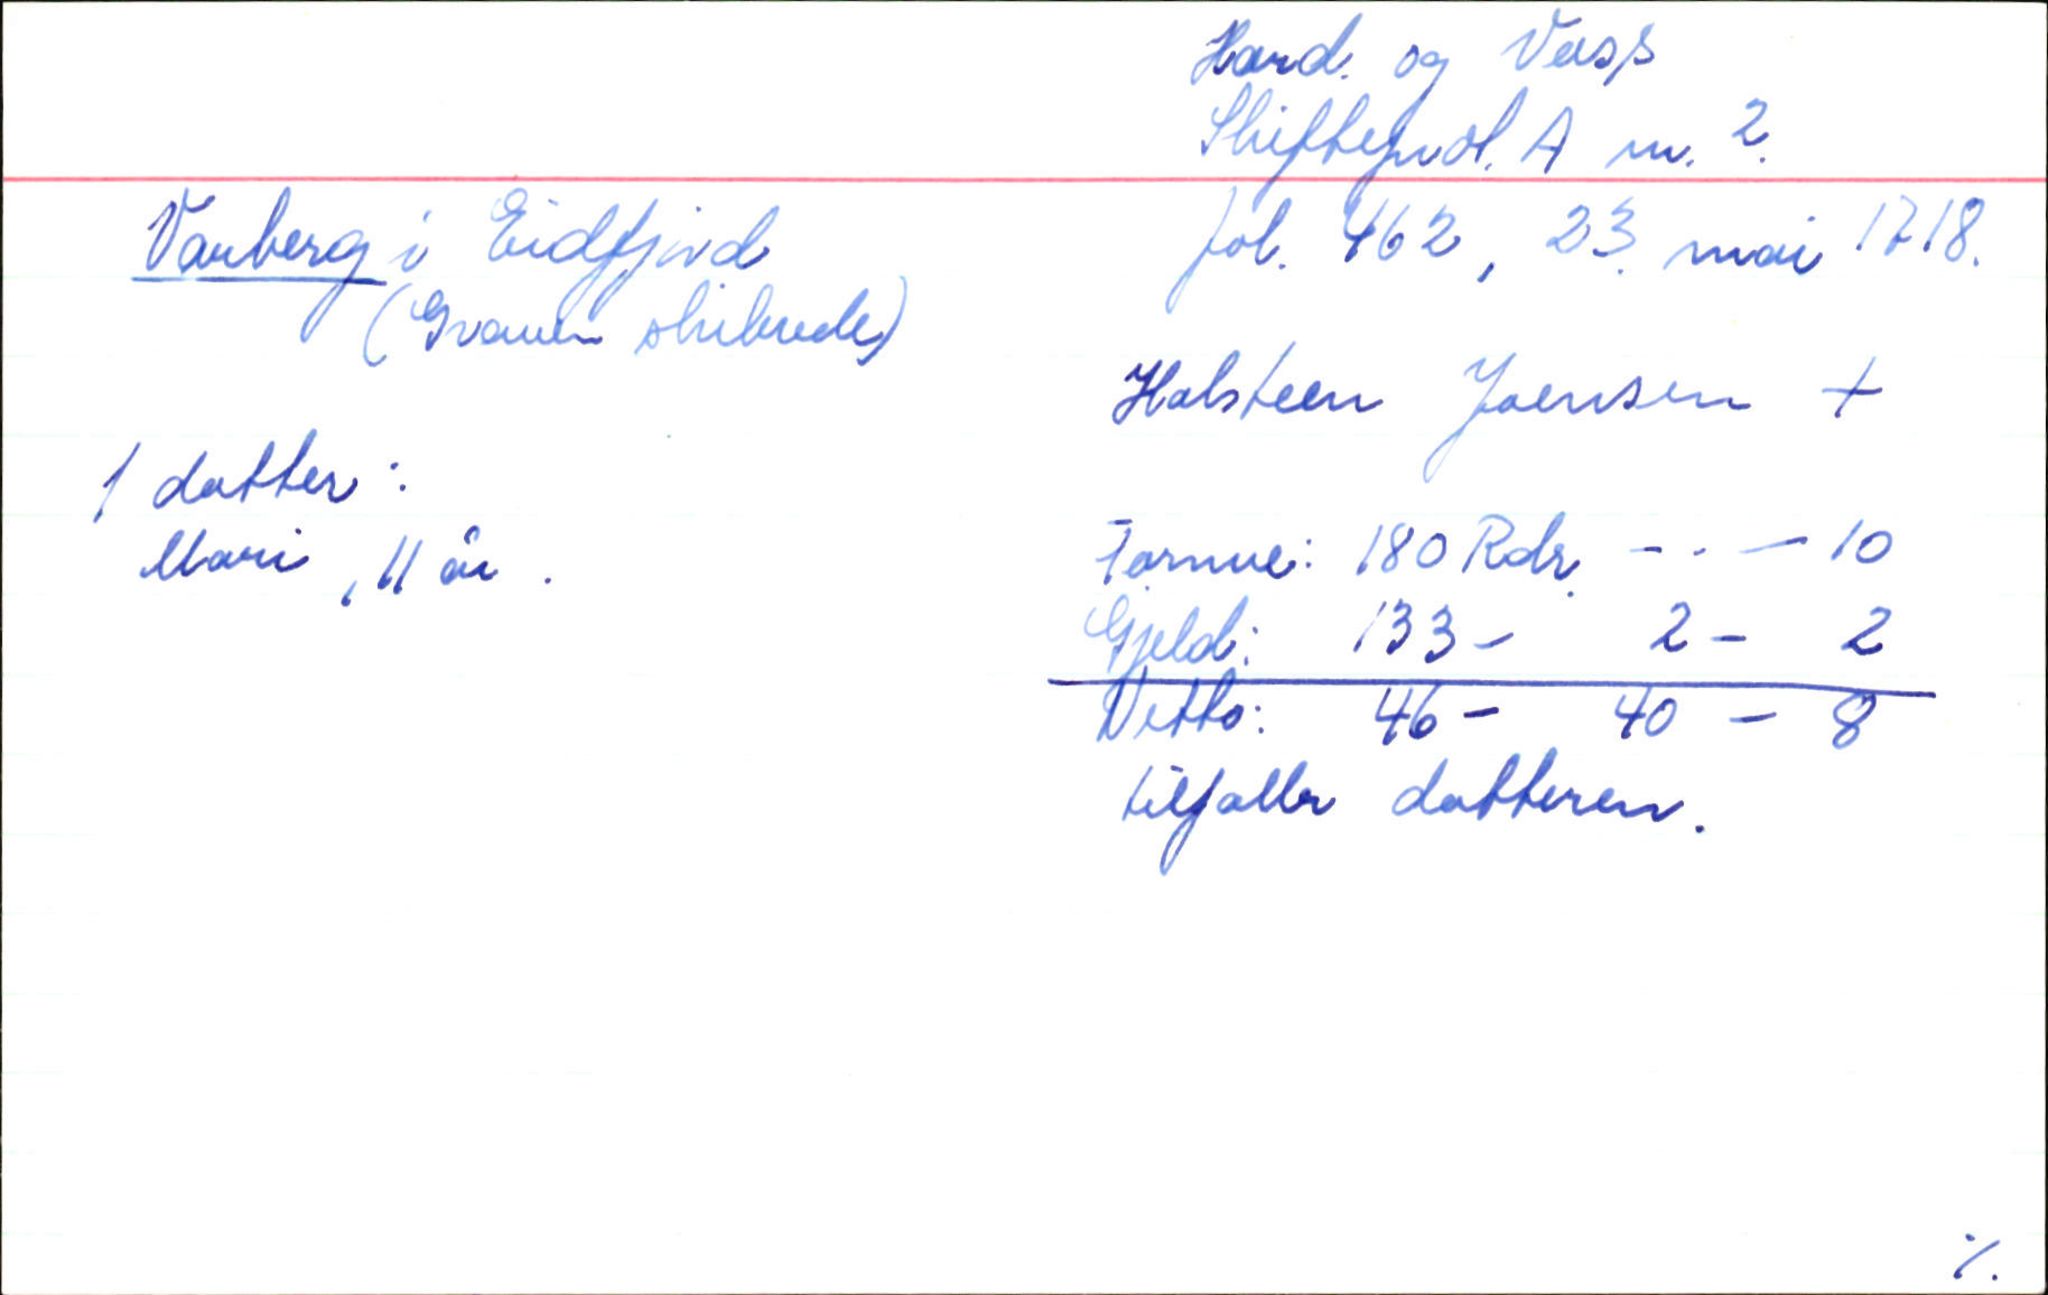 Hard. og Voss
Skifteprot. A nr. 2.
Varberg i Eidfjord
(Graven skibrede)
fol. 462, 23. mai 1718.
Holsteen Joensen +
1 datter:
Mari, 11 år.
Formue: 180 Rdr. - . - 10
Gjeld: 133 - 2 - 2
Netto: 46 - 40 - 8
tilfaller datteren.
./.